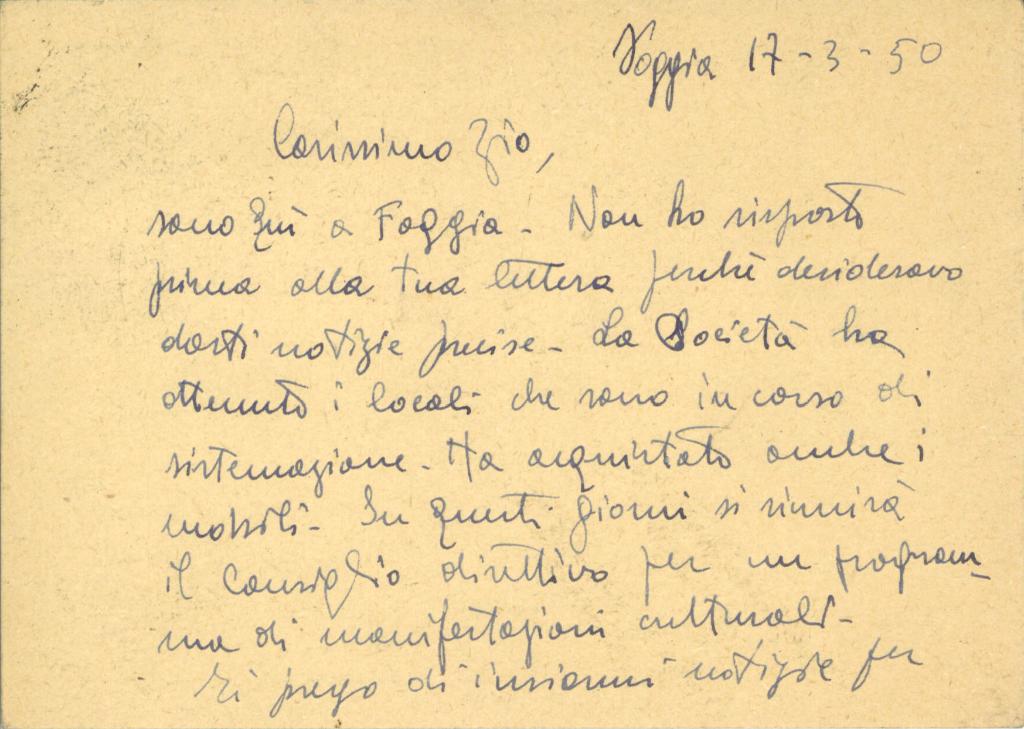 Foggia 17-3-50
Carissimo Zio,
sono quì a Foggia - Non ho risposto
prima alla tua lettera perchè desideravo
darti notizie precise - La Società ha
ottenuto i locali che sono in corso di
sistemazione - Ha acquistato anche i
mobili - In questi giorni si riunirà
il Consiglio direttivo per un program-
ma di manifestazioni culturali -
Ti prego di inviarmi notizie per